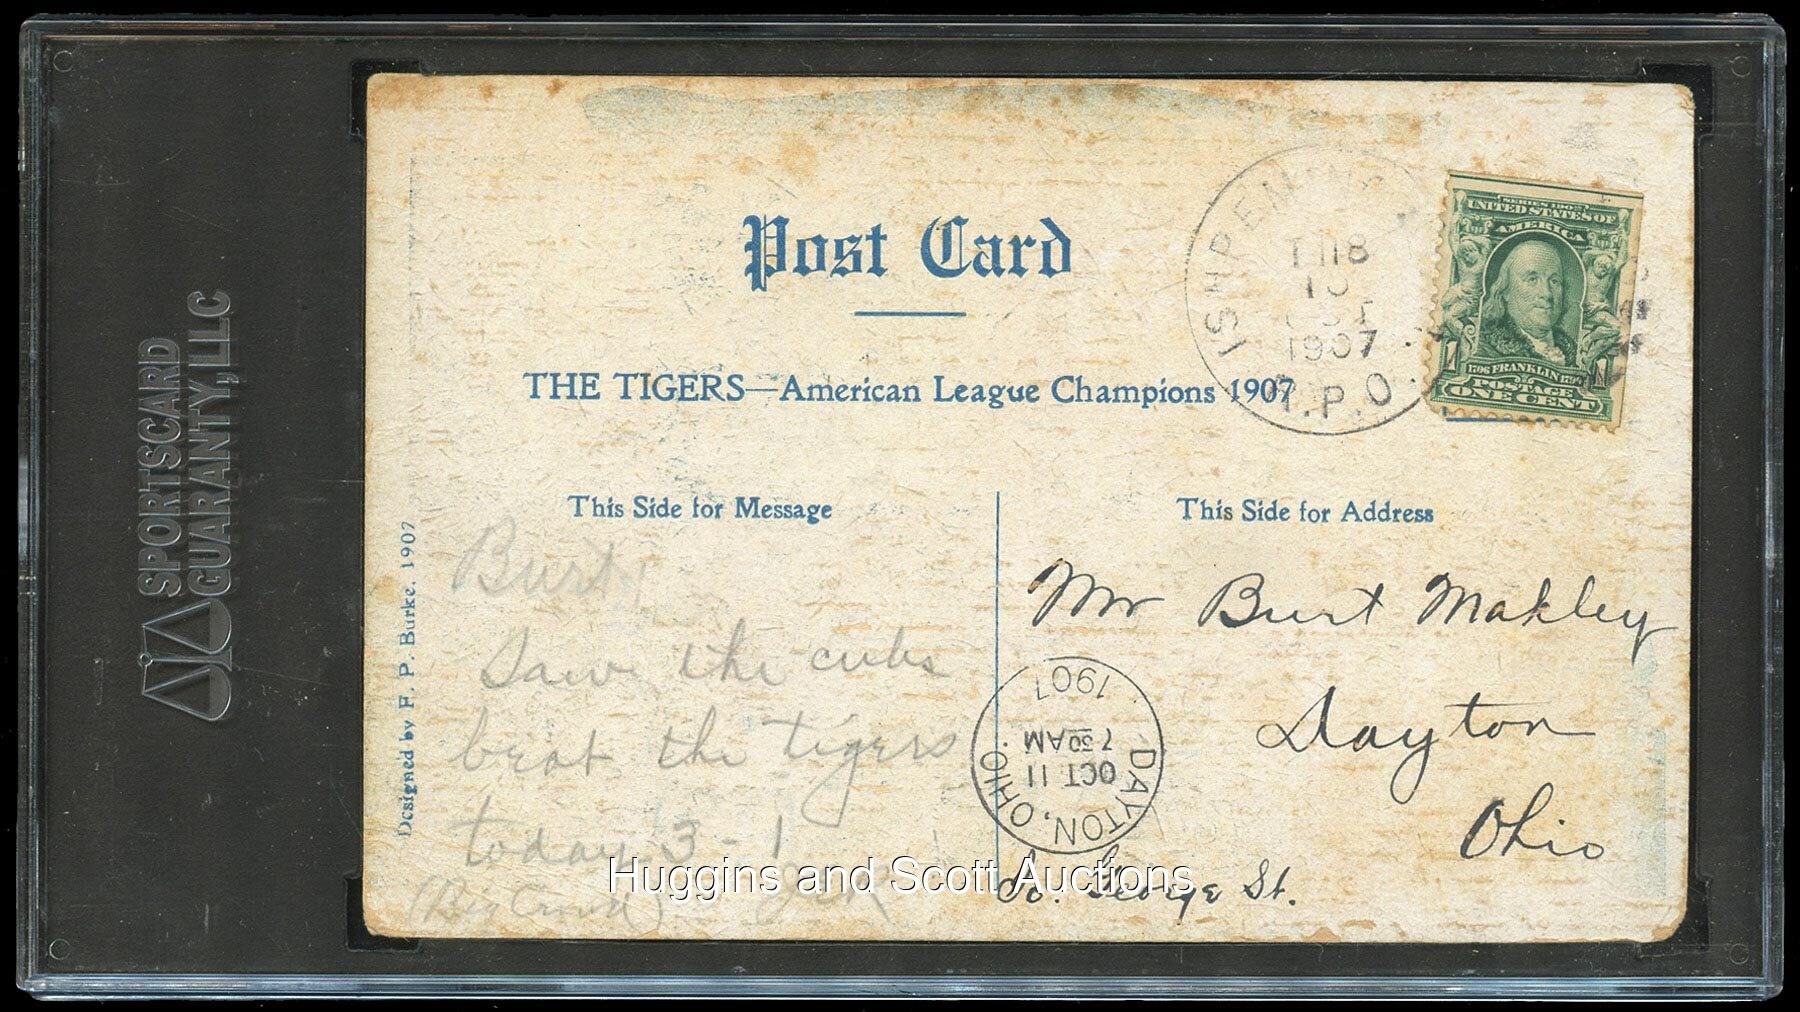 SPORTSCARD
GUARANTY, LLC
Post Card
THE TIGERS—American League Champions 1907
ISHPEMING
1907
R.P.O.
SERIES 1902
UNITED STATES OF
AMERICA
1706 FRANKLIN 1790
POSTAGE
ONE CENT
This Side for Message
Burt,
Saw the cubs
beat the tigers
today 3 - 1
(Big Crowd)
This Side for Address
Mr Burt Makley
Dayton
Ohio
So. George St.
DAYTON, OHIO.
OCT 11
7 30 AM
1907
Designed by F. P. Burke. 1907
Huggins and Scott Auctions